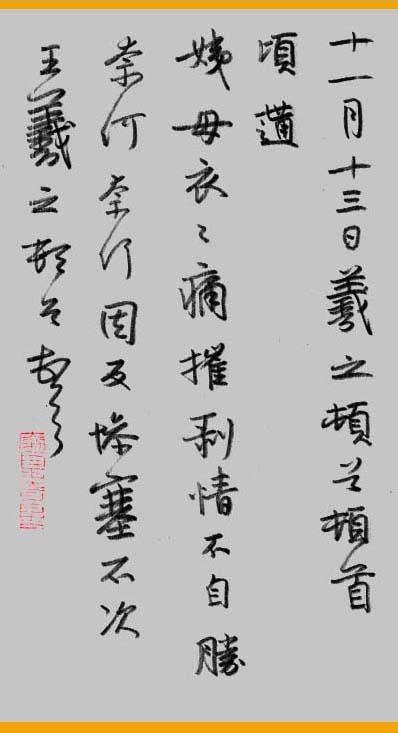 十一月十三日羲之頓首頓首
頃遘
姨母哀〻痛摧剥情不自勝
奈何奈何因反慘塞不次
王羲之頓首